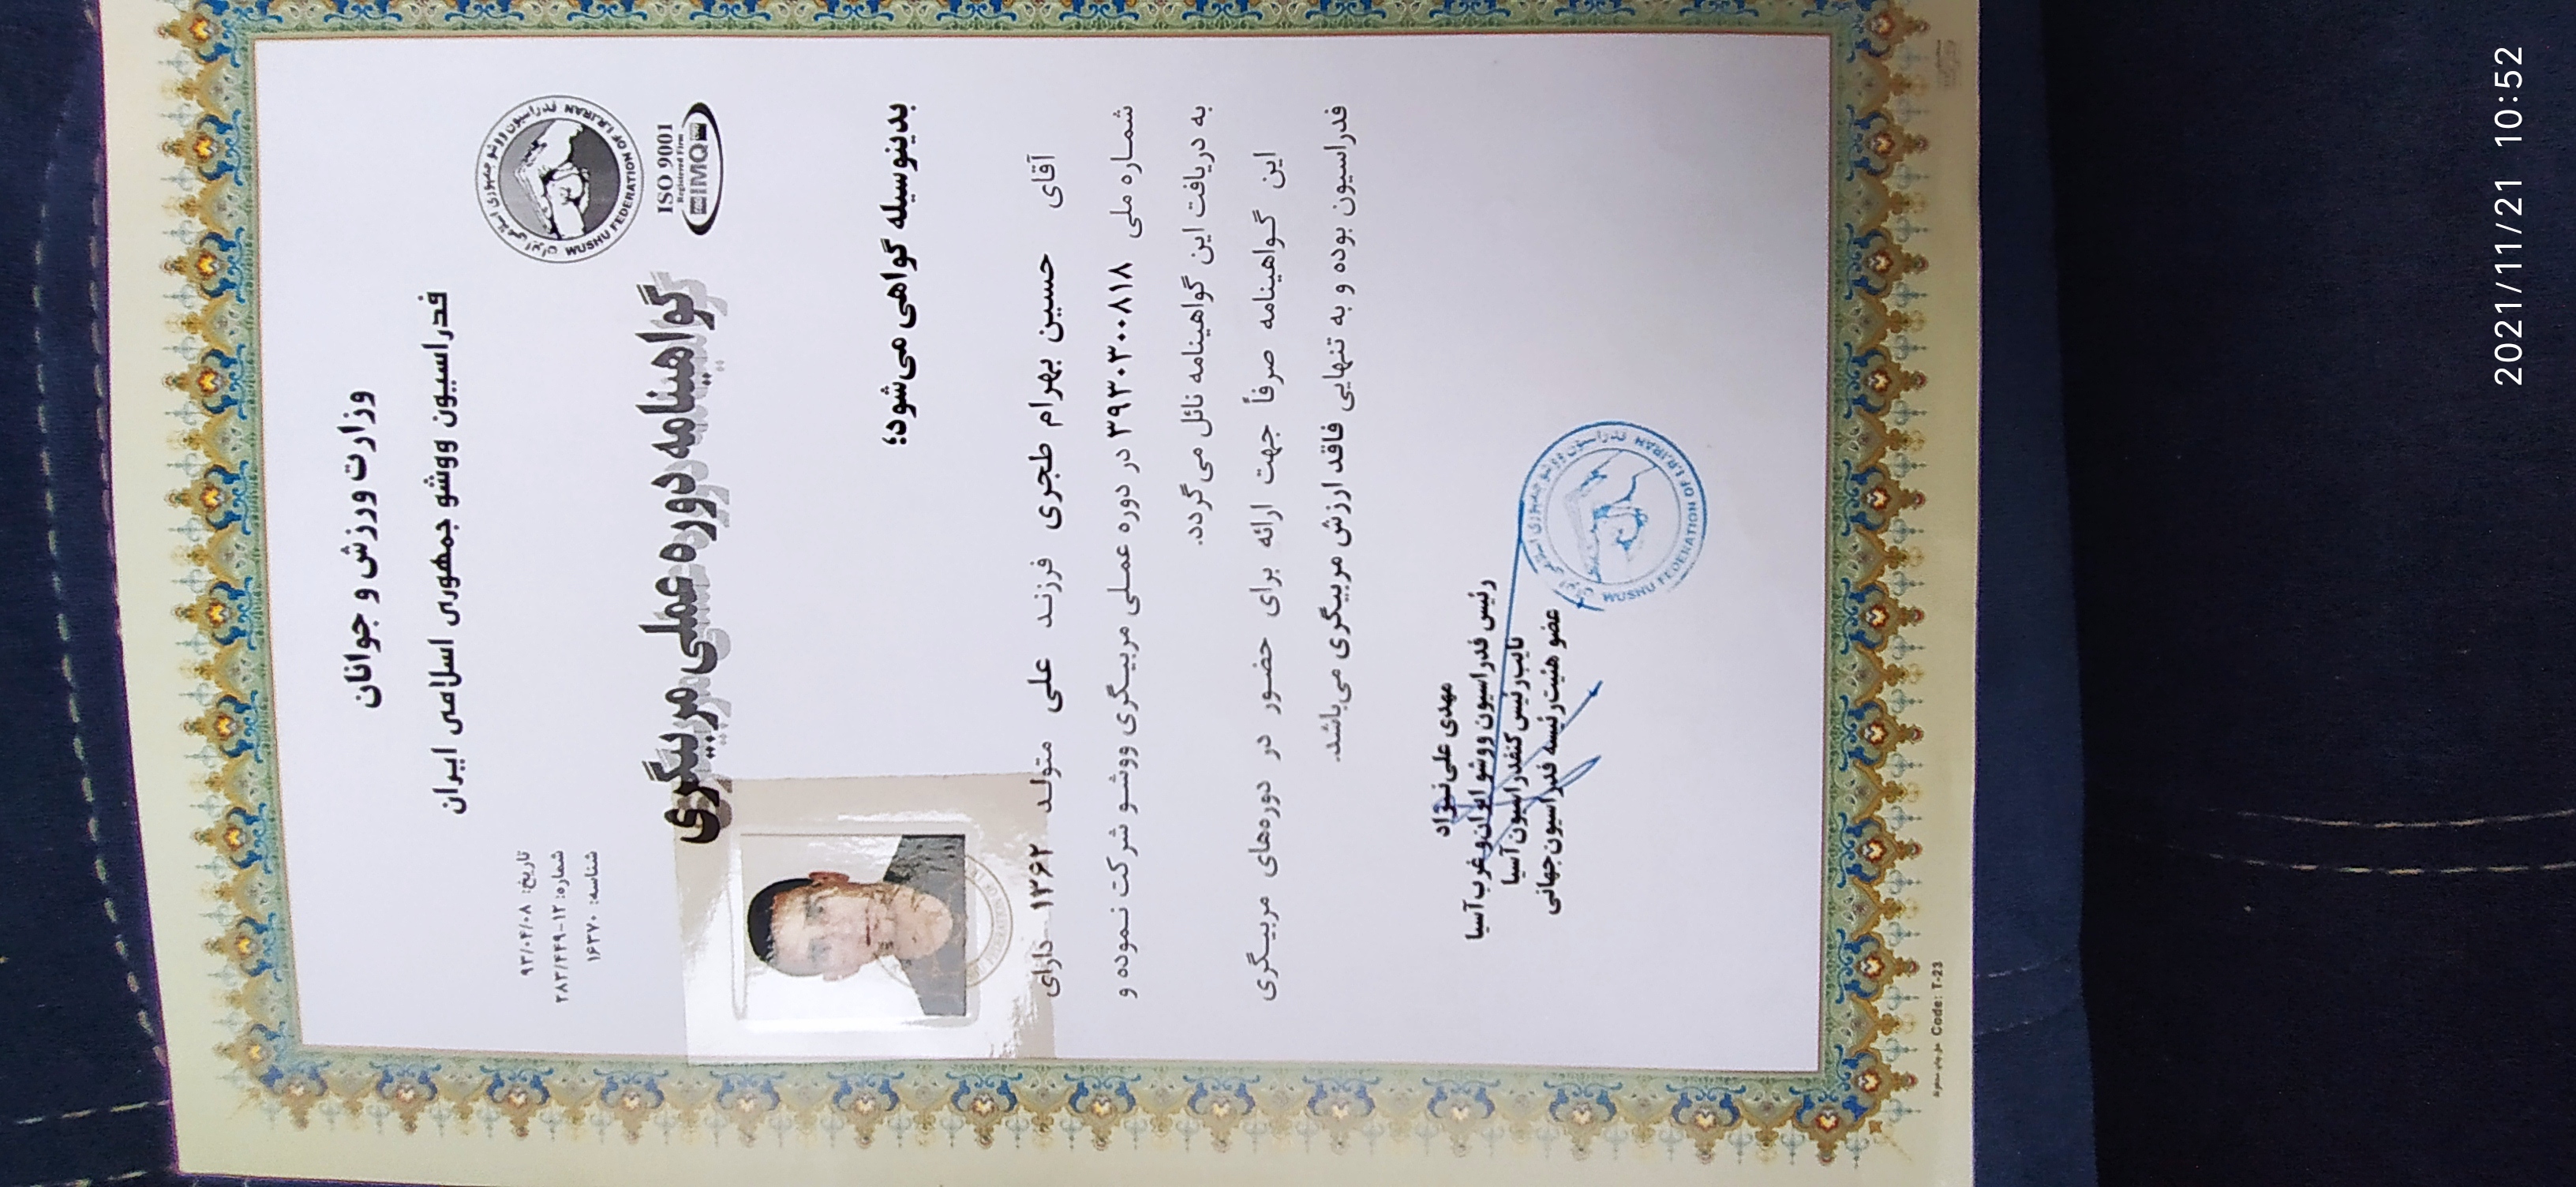 وزارت ورزش و جوانان
فدراسیون ووشو جمهوری اسلامی ایران
فدراسیون ووشو جمهوری اسلامی ایران
WUSHU FEDERATION OF I.R.IRAN
ISO 9001
Registered Firm
IMQ
تاریخ: ۹۳/۰۴/۰۸
شماره: ۲۸۳/۴۴۹-۱۲
شناسه: ۱۶۳۷۰
گواهینامه دوره عملی مربیگری
بدینوسیله گواهی می‌شود؛
آقای حسین بهرام طجری فرزند علی متولد ۱۳۶۲ دارای
شماره ملی ۳۹۳۰۳۰۰۸۱۸ در دوره عملی مربیگری ووشو شرکت نموده و
به دریافت این گواهینامه نائل می‌گردد.
این گواهینامه صرفاً جهت ارائه برای حضور در دوره‌های مربیگری
فدراسیون بوده و به تنهایی فاقد ارزش مربیگری می‌باشد.
مهدی علی نژاد
رئیس فدراسیون ووشو ایران و غرب آسیا
نایب رئیس کنفدراسیون آسیا
عضو هیئت رئیسه فدراسیون جهانی
فدراسیون ووشو جمهوری اسلامی ایران
WUSHU FEDERATION OF I.R.IRAN
Code: T-23
2021/11/21 10:52